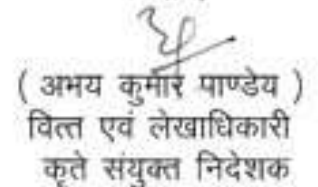 ( अभय कुमार पाण्डेय )
वित्त एवं लेखाधिकारी
कृते संयुक्त निदेशक